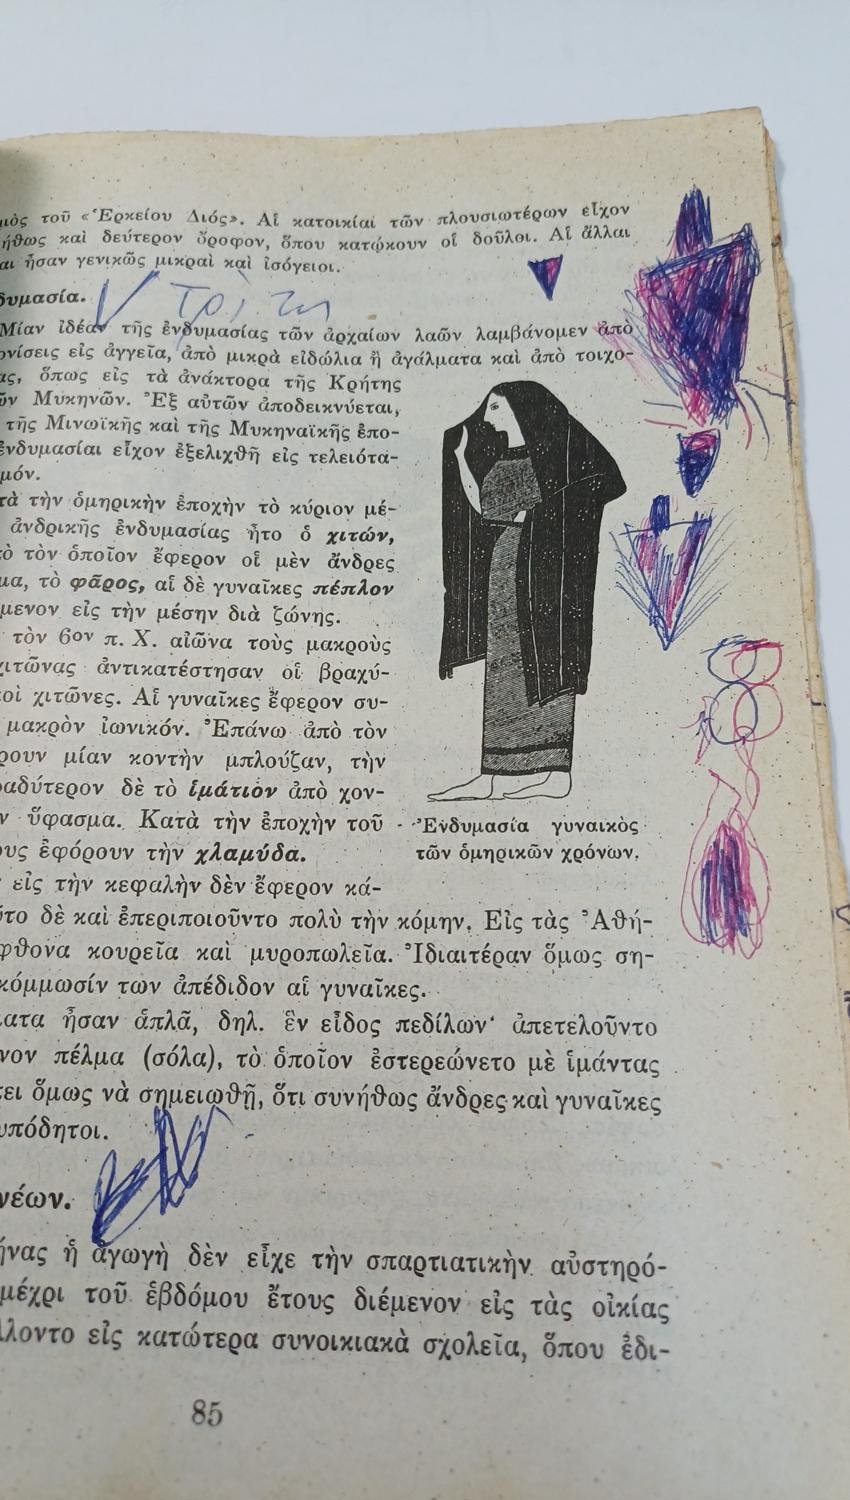 μὸς τοῦ «Ἑρκείου Διός». Αἱ κατοικίαι τῶν πλουσιωτέρων εἶχον
ήθως καὶ δεύτερον ὄροφον, ὅπου κατῴκουν οἱ δοῦλοι. Αἱ ἄλλαι
αι ἦσαν γενικῶς μικραὶ καὶ ἰσόγειοι.
δυμασία.
Τρίτη
Μίαν ἰδέαν τῆς ἐνδυμασίας τῶν ἀρχαίων λαῶν λαμβάνομεν ἀπὸ
ονίσεις εἰς ἀγγεῖα, ἀπὸ μικρὰ εἰδώλια ἢ ἀγάλματα καὶ ἀπὸ τοιχο-
ας, ὅπως εἰς τὰ ἀνάκτορα τῆς Κρήτης
ῶν Μυκηνῶν. Ἐξ αὐτῶν ἀποδεικνύεται,
τῆς Μινωϊκῆς καὶ τῆς Μυκηναϊκῆς ἐπο-
ἐνδυμασίαι εἶχον ἐξελιχθῆ εἰς τελειότα-
μόν.
τὰ τὴν ὁμηρικὴν ἐποχὴν τὸ κύριον μέ-
ἀνδρικῆς ἐνδυμασίας ἦτο ὁ χιτών,
ὸ τὸν ὁποῖον ἔφερον οἱ μὲν ἄνδρες
μα, τὸ φᾶρος, αἱ δὲ γυναῖκες πέπλον
μενον εἰς τὴν μέσην διὰ ζώνης.
τὸν 6ον π. Χ. αἰῶνα τοὺς μακροὺς
χιτῶνας ἀντικατέστησαν οἱ βραχύ-
οὶ χιτῶνες. Αἱ γυναῖκες ἔφερον συ-
μακρὸν ἰωνικόν. Ἐπάνω ἀπὸ τὸν
ρουν μίαν κοντὴν μπλούζαν, τὴν
αδύτερον δὲ τὸ ἱμάτιον ἀπὸ χον-
ν ὕφασμα. Κατὰ τὴν ἐποχὴν τοῦ
ους ἐφόρουν τὴν χλαμύδα.
Ἐνδυμασία γυναικὸς
τῶν ὁμηρικῶν χρόνων.
εἰς τὴν κεφαλὴν δὲν ἔφερον κά-
ῦτο δὲ καὶ ἐπεριποιοῦντο πολὺ τὴν κόμην. Εἰς τὰς Ἀθή-
φθονα κουρεῖα καὶ μυροπωλεῖα. Ἰδιαιτέραν ὅμως ση-
κόμμωσίν των ἀπέδιδον αἱ γυναῖκες.
ατα ἦσαν ἁπλᾶ, δηλ. ἓν εἶδος πεδίλων· ἀπετελοῦντο
νον πέλμα (σόλα), τὸ ὁποῖον ἐστερεώνετο μὲ ἱμάντας
ει ὅμως νὰ σημειωθῇ, ὅτι συνήθως ἄνδρες καὶ γυναῖκες
υπόδητοι.
νέων.
ήνας ἡ ἀγωγὴ δὲν εἶχε τὴν σπαρτιατικὴν αὐστηρό-
μέχρι τοῦ ἑβδόμου ἔτους διέμενον εἰς τὰς οἰκίας
λλοντο εἰς κατώτερα συνοικιακὰ σχολεῖα, ὅπου ἐδι-
85